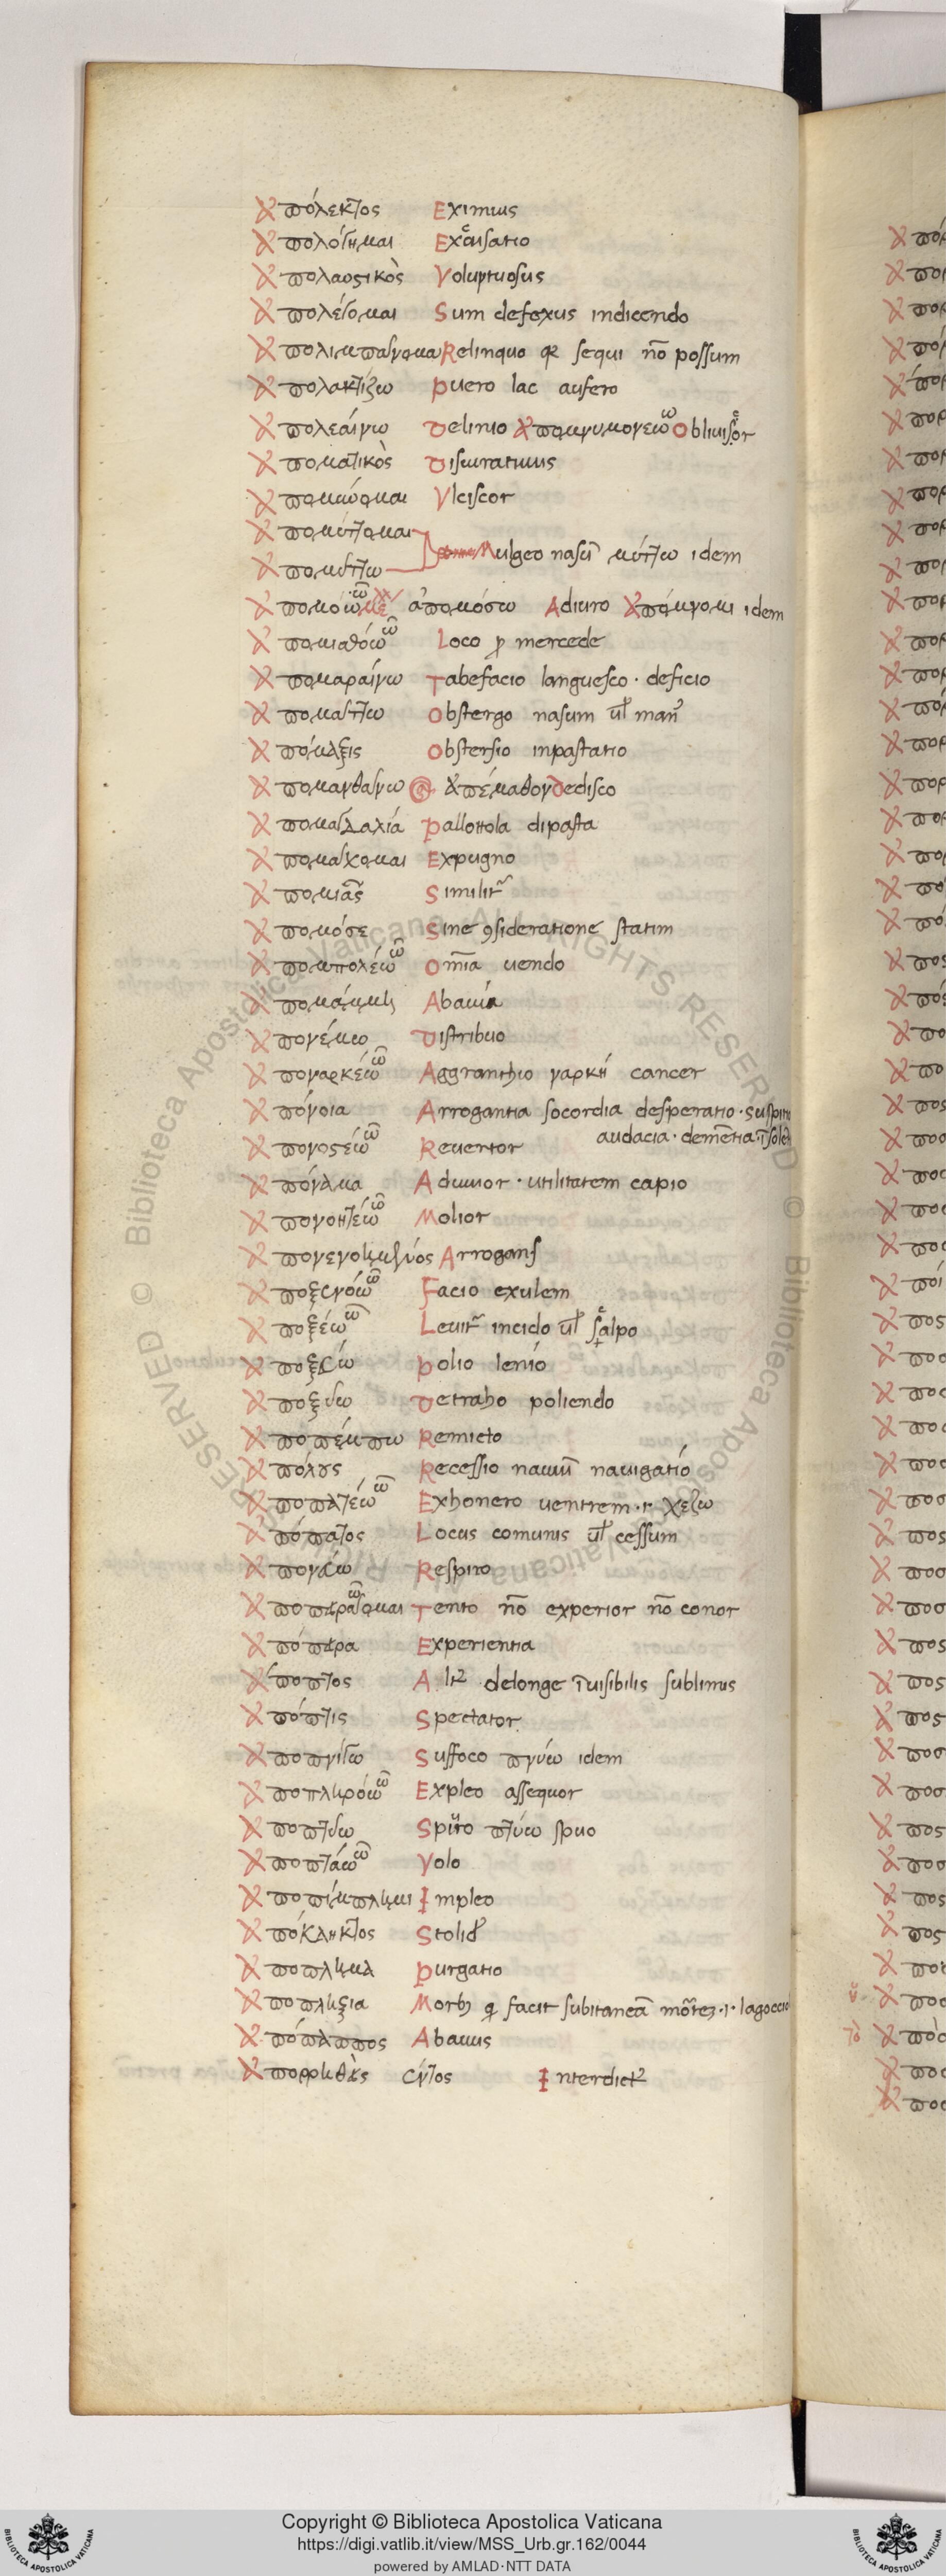 Ἀπόλεκτος Eximius
Ἀπολόγημαι Excusatio
Ἀπολαυστικὸς Voluptuosus
Ἀπολέγομαι Sum defexus indicendo
Ἀπολιμπάνομαι Relinquo qr sequi nō possum
Ἀπολακτίζω Puero lac aufero
Ἀπολεαίνω Delinio Ἀπομνημονεω Obliuiscor
Ἀποματικὸς Discuratiuus
Ἀπομάομαι Vlciscor
Ἀπομύττομαι
Mulgeo nasū μύττω idem
Ἀπομύττω
Ἀπομόω ἀπομόσω Adiuro Ἀπόμνομι idem
Ἀπομισθόω Loco ꝓ mercede
Ἀπομαραίνω Tabefacio languesco · deficio
Ἀπομάττω Obstergo nasum ul̄ man
Ἀπόμαξις Obstersio inpastatio
Ἀπομανθάνω Ἀπέμαθον Dedisco
Ἀπομαγδαλία Pallottola dipasta
Ἀπομάχομαι Expugno
Ἀπομιᾶς Similit
Ἀπομόσε Sine ꝯsideratione statim
Ἀπομπολέω Om̄ia uendo
Ἀπομάμμη Abauia
Ἀπονέμω Distribuo
Ἀποναρκέω Aggranchio ναρκή cancer
Ἀπόνοια Arrogantia socordia desperatio · suspitio
audacia · demētia īsolē
Ἀπονοστέω Reuertor
Ἀπόναμα Adiuuor · utilitatem capio
Ἀπονοητέω Molior
Ἀπονενοημένος Arrogans
Ἀποξενόω Facio exulem
Ἀποξέω Leuit incido ul̄ scalpo
Ἀποξέω Polio lenio
Ἀποξύω Detraho poliendo
Ἀποπέμπω Remicto
Ἀπόλυς Recessio nauiū nauigatio
Ἀποπατέω Exhonero uentrem · χέζω
Ἀπόπατος Locus comunis ul̄ cessum
Ἀπονέω Respiro
Ἀποπειράομαι Tento nō experior nō conor
Ἀπόπειρα Experientia
Ἄποπτος Alt delonge īuisibilis sublimis
Ἀπόπτις Spectator
Ἀποπνίγω Suffoco πνύω idem
Ἀποπληρόω Expleo assequor
Ἀποπτύω Sputo πτύω spuo
Ἀποπτάω Volo
Ἀποπίμπλημι Impleo
Ἀπόκληκτος Stolid
Ἀποπλημα Purgatio
Ἀποπληξία Morbꝫ q facit subitaneā mortēꝫ · i · lagoccio
Ἀπόπαππος Abauus
Ἀπορρηθεὶς έντος Interdict